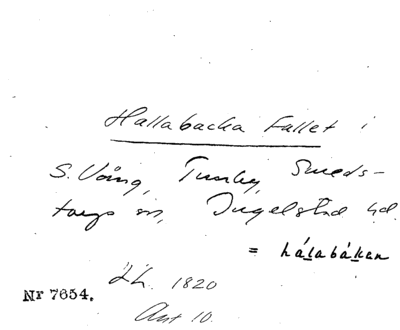 Hallabacka Fallet i
S. Vång, Tumby, Smeds-
torps sn, Ingelstad hd.
= hálabákan
Lh. 1820
Nr 7654.
Akt 10.